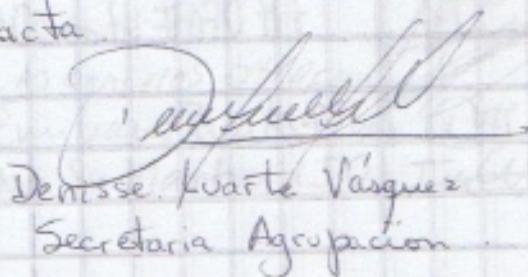 acta
Denisse Kuarte Vásquez
Secretaria Agrupación.